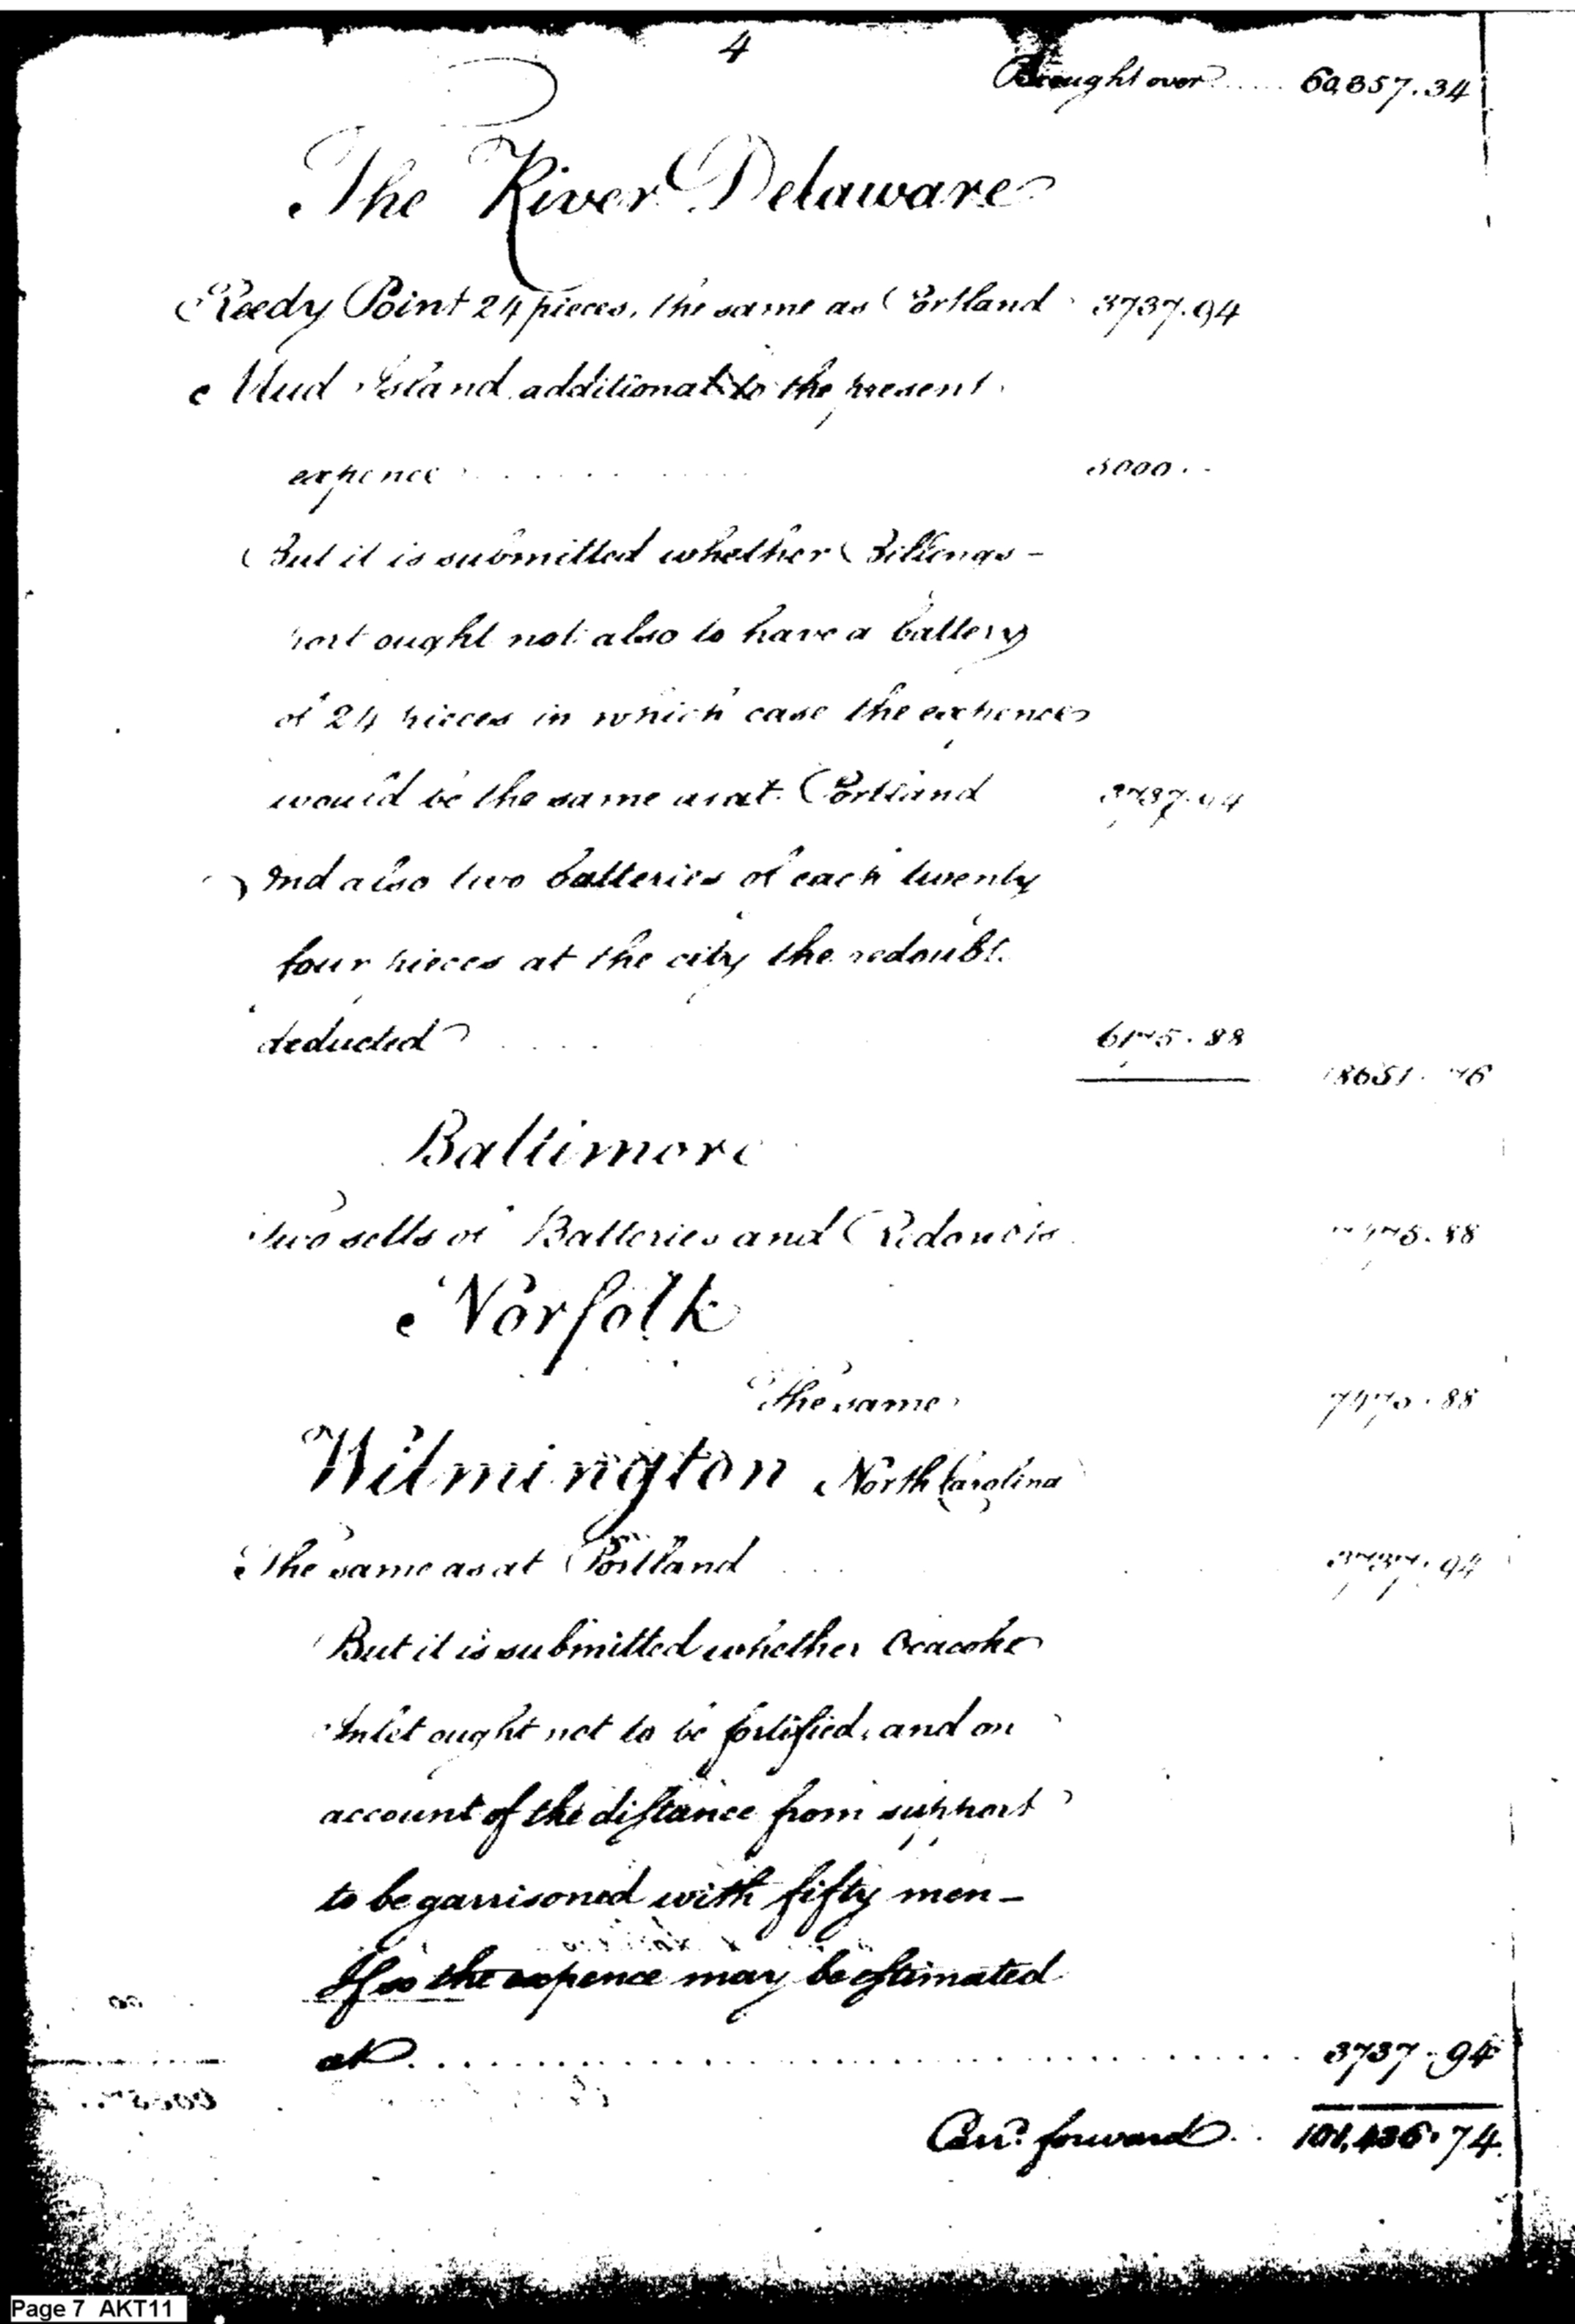 4
Brought over ..... 60,357.34
The River Delaware
Reedy Point 24 pieces, the same as Portland 3737.94
Mud Island additional to the present
expence . . . . . . . . 5000 . .
But it is submitted whether Billings-
port ought not also to have a battery
of 24 pieces in which case the expence
would be the same as at Portland 3737.94
And also two batteries of each twenty
four pieces at the city the redoubt
deducted . . . . 6175.88
18651.76
Baltimore
Two setts of Batteries and Redoubts 7475.88
Norfolk
The same 7475.88
Wilmington North Carolina
The same as at Portland . . . 3737.94
But it is submitted whether Ocacoke
Inlet ought not to be fortified, and on
account of the distance from support
to be garrisoned with fifty men-
If so the expence may be estimated
at . . . . . . . . . . . . . . . . . . . . . . . . 3737.94
Carr.d forward . . 101,436.74
Page 7 AKT11